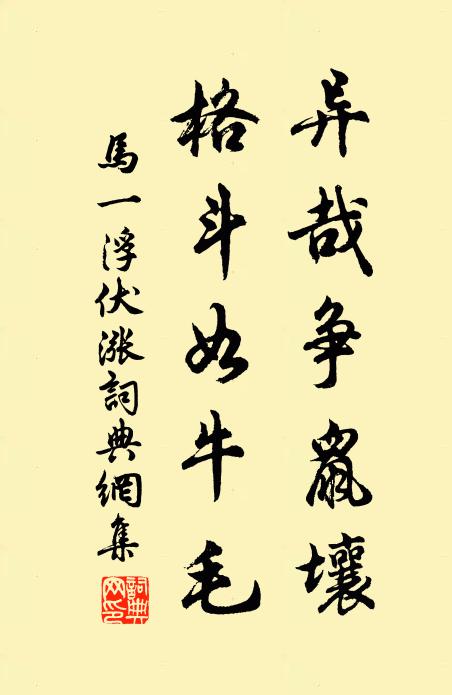 异哉争鼠壤
格斗如牛毛
馬一浮伏漲詞典網集
詞典网印